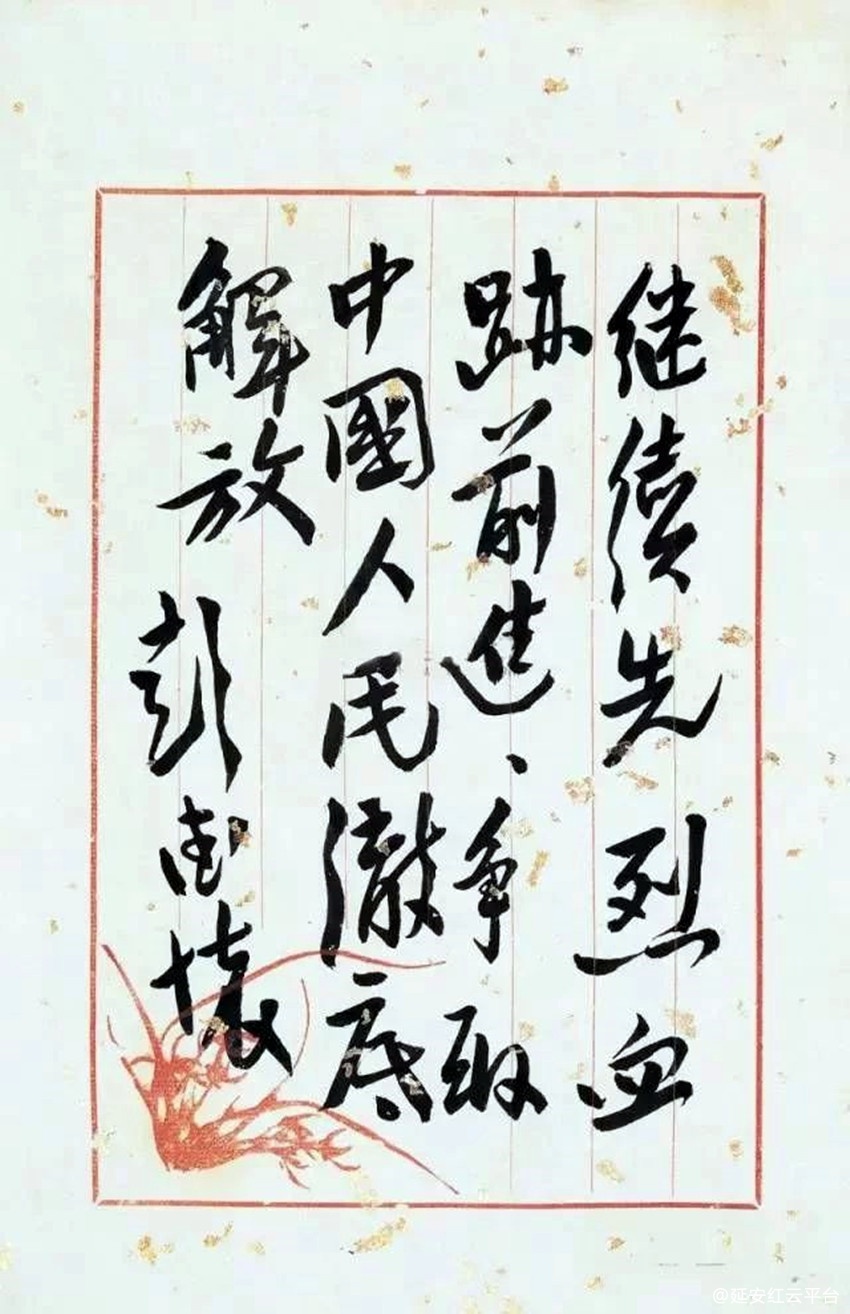 继续先烈血
跡前進、争取
中國人民徹底
解放 彭德懷
@延安红云平台